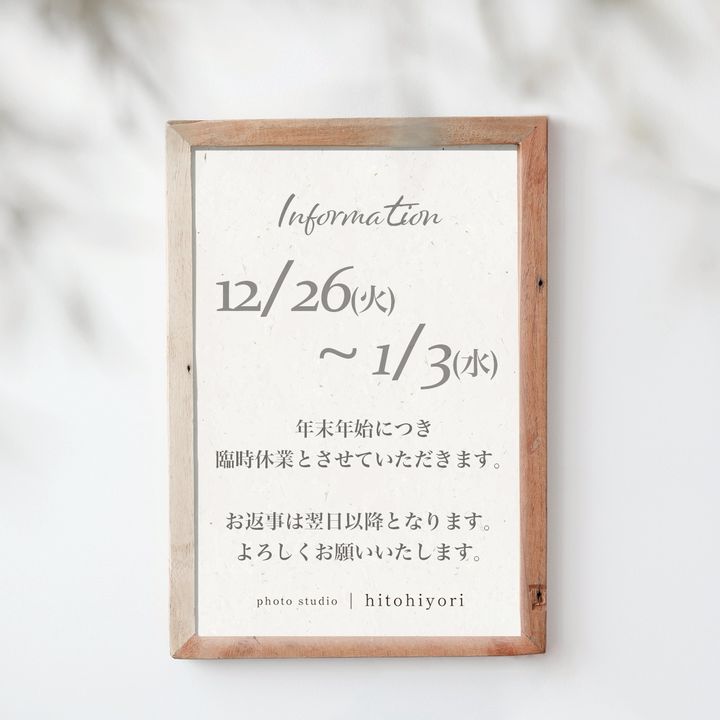 Information
12/26(火)
~ 1/3(水)
年末年始につき
臨時休業とさせていただきます。
お返事は翌日以降となります。
よろしくお願いいたします。
photo studio | hitohiyori